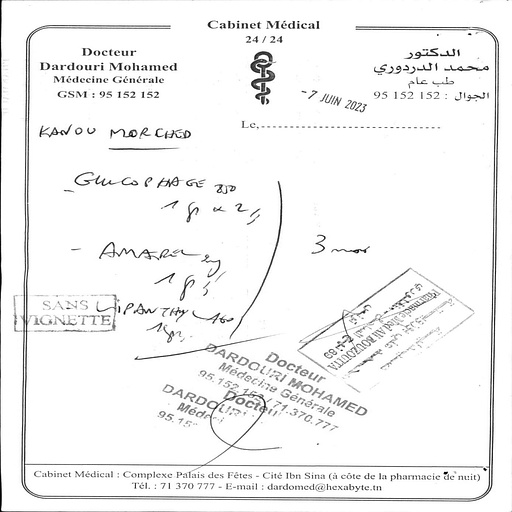 Cabinet Médical
24 / 24
Docteur
Dardouri Mohamed
Médecine Générale
GSM : 95 152 152
الدكتور
محمد الدردوري
طب عام
الجوال : 152 152 95
-7 JUIN 2023
Le,
KANOU MORCHED
- GLUCOPHAGE 850
1 x 2
3 mois
- AMAREL
SANS
VIGNETTE
LIPANTHYL
Docteur
DARDOURI MOHAMED
Médecine Générale
95.152.152 / 71.370.777
Docteur
DARDOURI
Cabinet Médical : Complexe Palais des Fêtes - Cité Ibn Sina (à côte de la pharmacie de nuit)
Tél. : 71 370 777 - E-mail : dardomed@hexabyte.tn